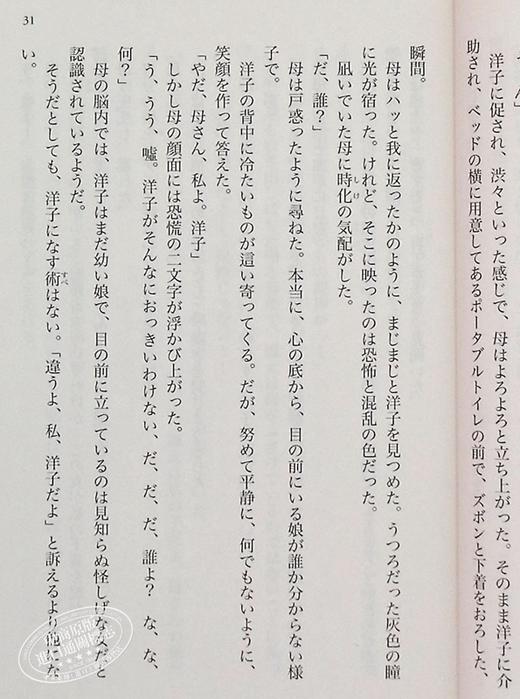 31
洋子に促され、渋々といった感じで、母はよろよろと立ち上がった。そのまま洋子に介
助され、ベッドの横に用意してあるポータブルトイレの前で、ズボンと下着をおろした、
瞬間。
母はハッと我に返ったかのように、まじまじと洋子を見つめた。うつろだった灰色の瞳
に光が宿った。けれど、そこに映ったのは恐怖と混乱の色だった。
凪いでいた母に時化の気配がした。
しけ
「だ、誰?」
母は戸惑ったように尋ねた。本当に、心の底から、目の前にいる娘が誰か分からない様
子で。
洋子の背中に冷たいものが這い寄ってくる。だが、努めて平静に、何でもないように、
笑顔を作って答えた。
「やだ、母さん、私よ。洋子」
しかし母の顔面には恐慌の二文字が浮かび上がった。
「う、うう、嘘。洋子がそんなにおっきいわけない、だ、だ、だ、誰よ? な、な、
何?」
母の脳内では、洋子はまだ幼い娘で、目の前に立っているのは見知らぬ怪しげな女だと
認識されているようだ。
そうだとしても、洋子になす術はない。「違うよ、私、洋子だよ」と訴えるより他にな
すべ
い。